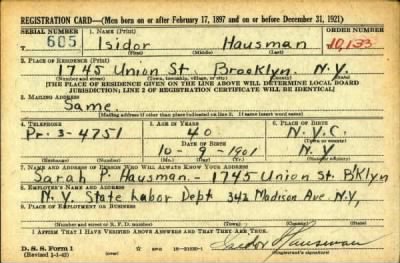 REGISTRATION CARD—(Men born on or after February 17, 1897 and on or before December 31, 1921)
SERIAL NUMBER 1. NAME (Print) ORDER NUMBER
605 Isidor Hausman 10,133
(First) (Middle) (Last)
2. PLACE OF RESIDENCE (Print)
1745 Union St. Brooklyn. N.Y.
(Number and street) (Town, township, village, or city) (County) (State)
[THE PLACE OF RESIDENCE GIVEN ON THE LINE ABOVE WILL DETERMINE LOCAL BOARD
JURISDICTION; LINE 2 OF REGISTRATION CERTIFICATE WILL BE IDENTICAL]
3. MAILING ADDRESS
Same.
[Mailing address if other than place indicated on line 2. If same insert word same]
4. TELEPHONE 5. AGE IN YEARS 6. PLACE OF BIRTH
Pr. 3-4751 40 N.Y.C.
DATE OF BIRTH (Town or county)
10-9-1901 N.Y.
(Exchange) (Number) (Mo.) (Day) (Yr.) (State or country)
7. NAME AND ADDRESS OF PERSON WHO WILL ALWAYS KNOW YOUR ADDRESS
Sarah P. Hausman.- 1745 Union St. B'Klyn
8. EMPLOYER'S NAME AND ADDRESS
N.Y. State Labor Dept 342 Madison Ave. N.Y,
9. PLACE OF EMPLOYMENT OR BUSINESS
(Number and street or R. F. D. number) (Town) (County) (State)
I AFFIRM THAT I HAVE VERIFIED ABOVE ANSWERS AND THAT THEY ARE TRUE.
D. S. S. Form 1
(Revised 1-1-42)
Isidor Hausman
(Registrant's signature)